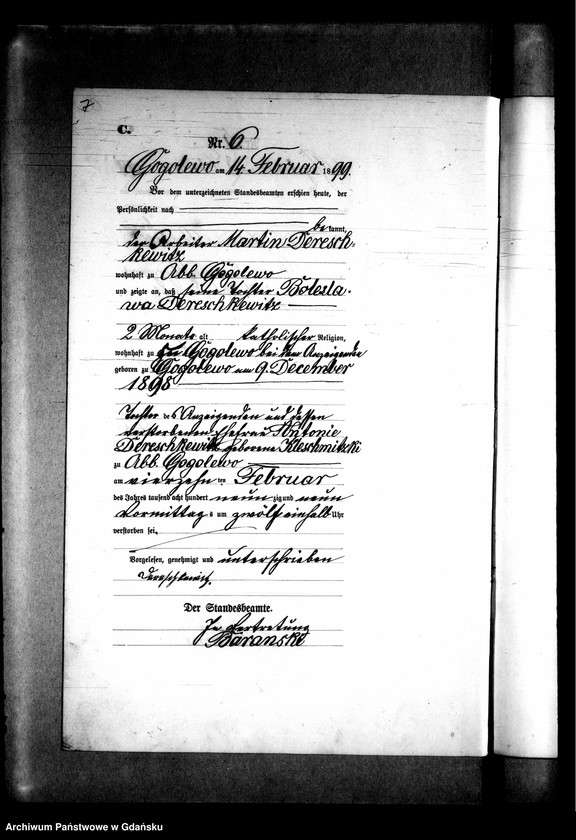 7
C.
Nr. 6
Gogolewo am 14 Februar 1899.
Vor dem unterzeichneten Standesbeamten erschien heute, der
Persönlichkeit nach
be kannt,
der Arbeiter Martin Deresch-
kewitz
wohnhaft zu Abb. Gogolewo
und zeigte an, daß seine Tochter Bolesla-
wa Dereschkewitz
2 Monate alt katholischer Religion,
wohnhaft zu Gogolewo bei dem Anzeigenden
geboren zu Gogolewo am 9. December
1898
Tochter des Anzeigenden und dessen
verstorbenen Ehefrau Antonie
Dereschkewitz geborene Kleschmitzki
zu Abb. Gogolewo
am vierzehn ten Februar
des Jahres tausend acht hundert neun zig und neun
Vormittag s um zwölf einhalb Uhr
verstorben sei.
Vorgelesen, genehmigt und unterschrieben
Der Standesbeamte.
In Vertretung
Baranski
Archiwum Państwowe w Gdańsku